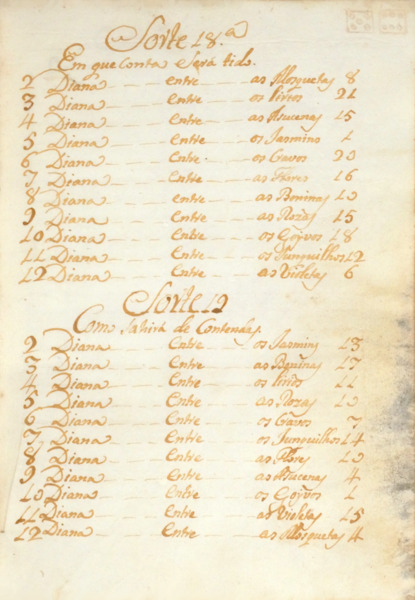 Sorte 18.ª
Em que conta será tido.
2 Diana entre as Mosquetas 8
3 Diana entre os lirios 21
4 Diana entre as Asucenas 15
5 Diana entre os Jasmins 1
6 Diana entre os Cravos 20
7 Diana entre as Flores 16
8 Diana entre as Boninas 10
9 Diana entre as Rozas 15
10 Diana entre os Goyvos 18
11 Diana entre os Junquilhos 12
12 Diana entre as Violetas 6
Sorte 19
Como sahirá de Contendas.
2 Diana entre os Jasmins 13
3 Diana entre as Boninas 17
4 Diana entre os lirios 11
5 Diana entre as Rozas 10
6 Diana entre os Cravos 7
7 Diana entre os Junquilhos 14
8 Diana entre as Flores 10
9 Diana entre as Asucenas 4
10 Diana entre os Goyvos 1
11 Diana entre as Violetas 15
12 Diana entre as Mosquetas 4